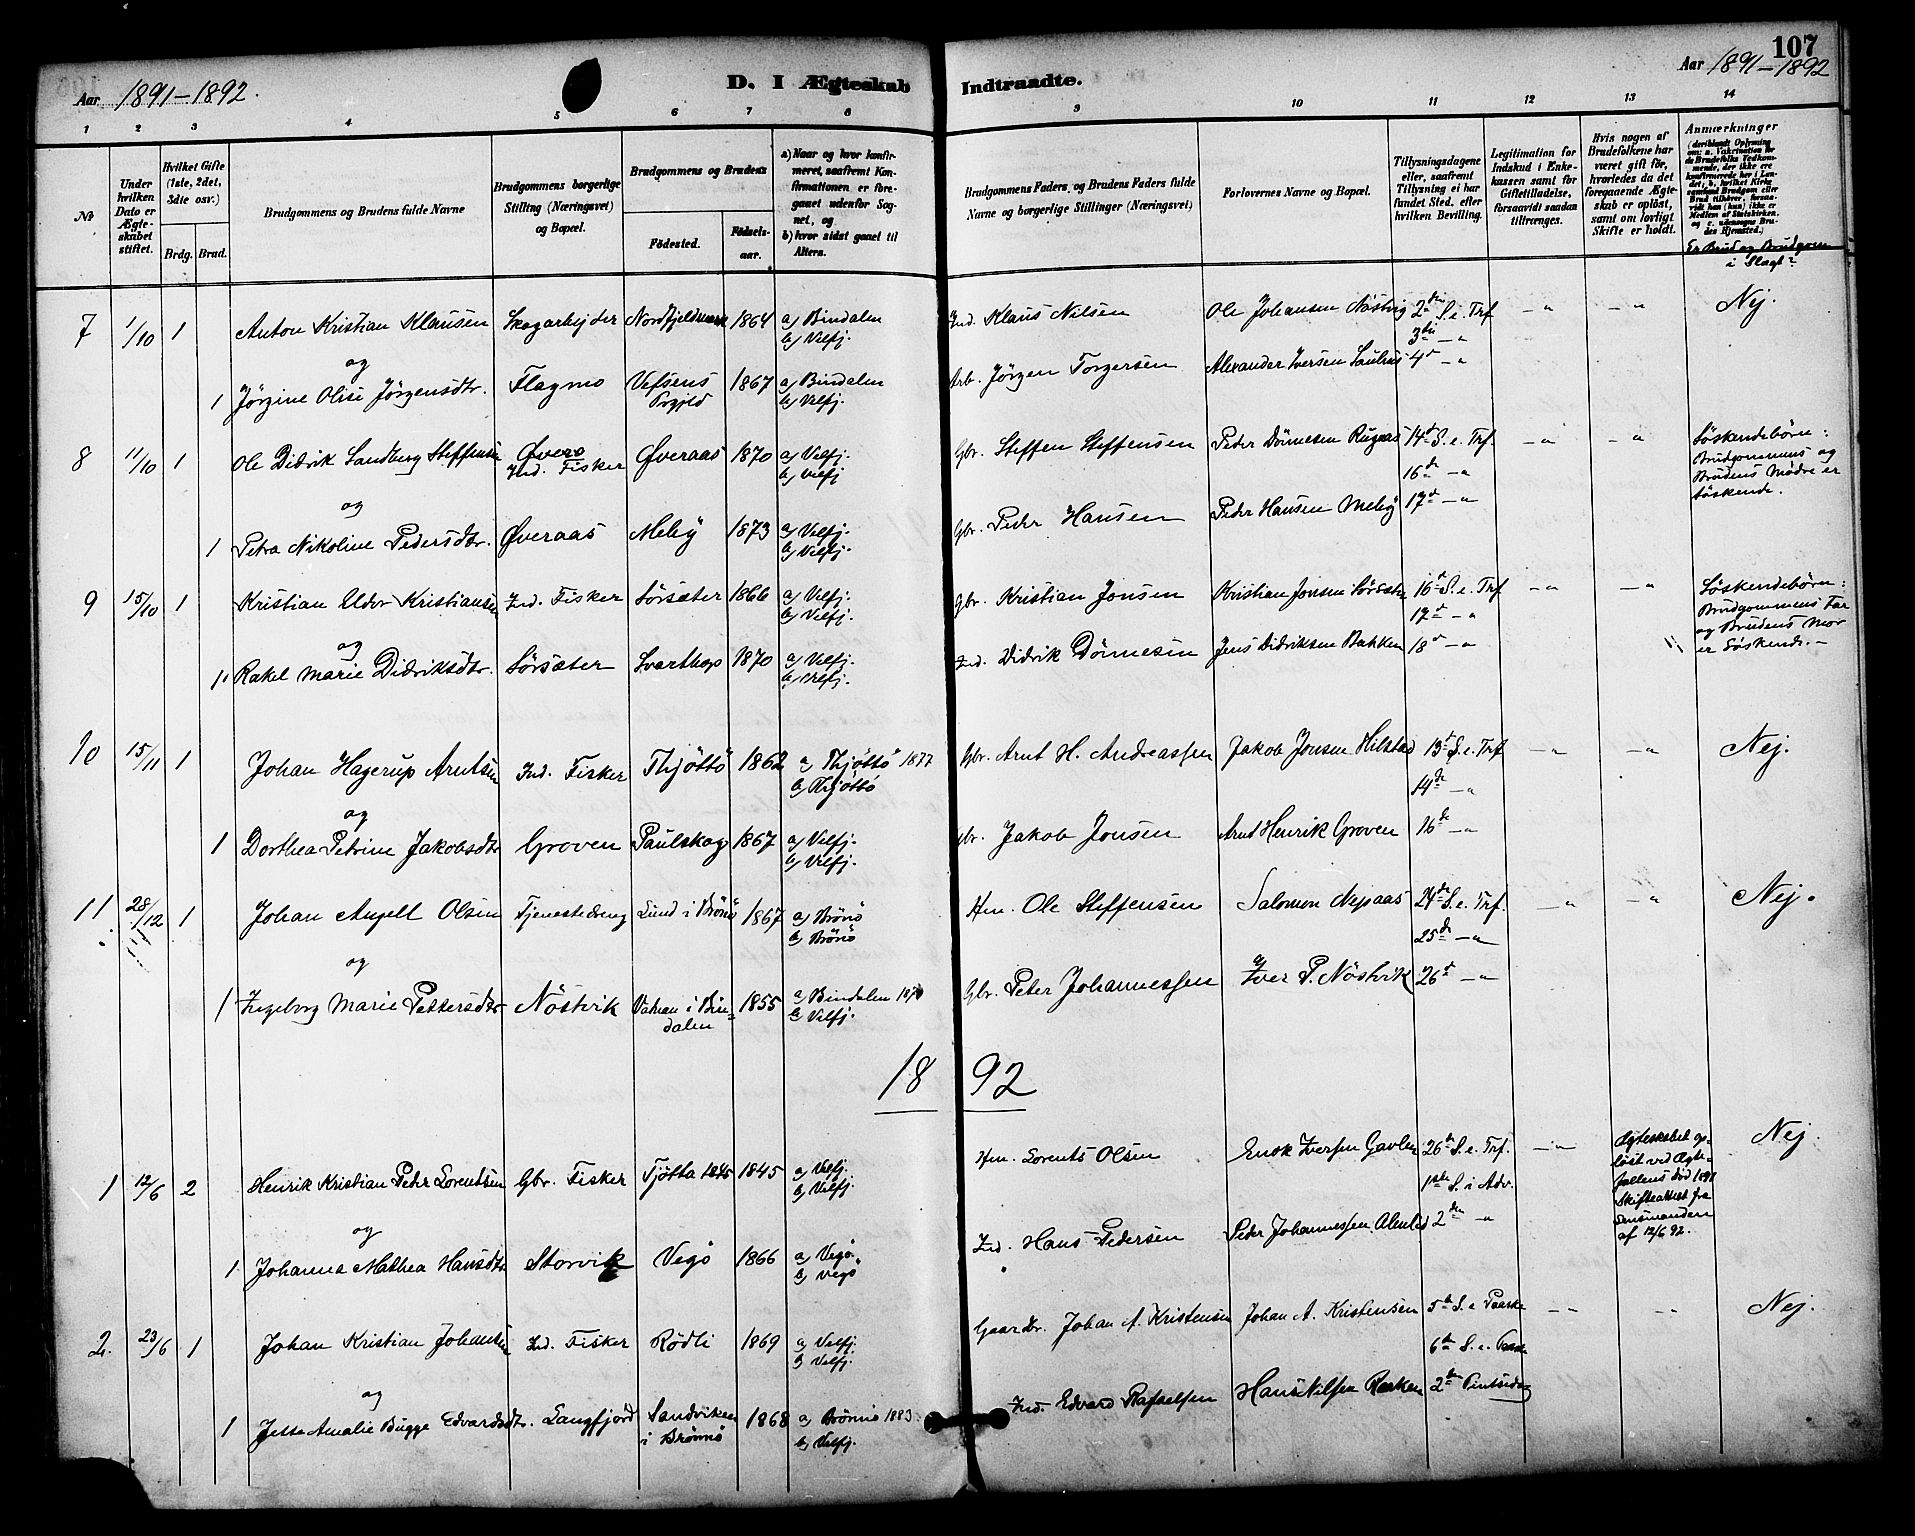 107
Aar 1891-1892.
D. I Ægteskab Indtraadte.
Aar 1891-1892
1 2 3 4 5 6 7 8 9 10 11 12 13 14
№
Under hvilken Dato er Ægteskabet stiftet.
Hvilket Gifte (1ste, 2det, 3die osv.)
Brdg. Brud.
Brudgommens og Brudens fulde Navne
Brudgommens borgerlige Stilling (Næringsvei) og Bopæl.
Brudgommens og Brudens
Födested. Födselsaar.
a) Naar og hvor konfirmeret, saafremt Konfirmationen er foregaaet udenfor Sognet, og
b) hvor sidst gaaet til Alters.
Brudgommens Faders, og Brudens Faders fulde Navne og borgerlige Stillinger (Næringsvei)
Forlovernes Navne og Bopæl.
Tillysningsdagene eller, saafremt Tillysning ei har fundet Sted, efter hvilken Bevilling.
Legitimation for Indskud i Enkekassen samt for Giftetilladelse, forsaavidt saadan tiltrænges.
Hvis nogen af Brudefolkene har været gift før, hvorledes da det foregaaende Ægteskab er oplöst, samt om lovligt Skifte er holdt.
Anmærkninger
Er Brud og Brudgom i Slægt?
7 1/10 1 Anton Kristian Klausen Skogarbejder 1864 a) Bindalen Ind. Klaus Nilsen Ole Johansen Nøstvig 2den S. e. Trf. -"- -"- Nej.
b) Velfj. 3di -"-
og
1 Jörgine Olise Jörgensdtr. Flagmo Vefsens Prgjeld 1867 a) Bindalen Arb. Jörgen Torgersen Alexander Iversen 4d -"-
b) Velfj.
8 11/10 1 Ole Didrik Sandberg Steffensen Øveraas Ind. Fisker Øveraas 1870 a) Velfj. Gbr. Steffen Steffensen Peder Dönnesen Rugaas 14d S. e. Trf. -"- -"- Söskendebörn:
b) Velfj 16de -"- Brudgommens og Brudens Mødre er Söskende.
og
1 Petra Nikoline Pedersdtr. Øveraas Meby 1873 a) Velfj. Gbr. Peder Hansen Peder Hansen Meby 17d -"-
b) Velfj.
9 15/10 1 Kristian Eldor Kristiansen Ind. Fisker Sörsæter 1866 a) Velfj. Gbr. Kristian Jonsen Kristian Jonsen Sörsæter 16d S. e. Trf. -"- -"- Söskendebörn:
b) Velfj. 17d -"- Brudgommens Far og Brudens Mor er Söskende.-
og
1 Rakel Marie Didriksdtr. Sörsæter Svarthop 1870 a) Velfj. Ind. Didrik Dönnesen Jens Didriksen Bakken 18d -"-
b) Velfj.
10 15/11 1 Johan Hagerup Arntsen Ind. Fisker Thjöttö 1862 a) Thjöttö 1877 Gbr. Arnt H. Andreassen Jakob Jonsen Hilstad 13d S. e. Trf -"- -"- Nej.
b) Thjöttö 14de -"-
og
1 Dorthea Petrine Jakobsdtr Groven Paulskog 1867 a) Velfj. Gbr. Jakob Jonsen Arnt Henrik Groven 16de -"-
b) Velfj.
11. 28/12 1 Johan Angell Olsen Tjenestedreng Lund i Brönö 1867 a) Brönö Hm. Ole Steffensen Salomon Nepaas 24de S. e. Trf. -"- -"- Nej.
b) Brönö 25de -"-
og
1 Ingeborg Marie Pettersdtr Nöstvik Vatnan i Bindalen 1855 a) Bindalen Gbr. Peter Johannessen Iver P. Nöstvik 26d -"-
b) Velfj.
1892
1 12/6 2 Henrik Kristian Peder Lorentsen Gbr. Fisker Tjøtta 1845 1845 a) Velfj. Hm. Lorents Olsen Enok Iversen Gavlen 26de S. e. Trf. -"- Ægteskabet opløst ved Ægtefællens död 1891 Skifteattest fra Lensmanden af 12/6 92. Nej.
b) Velfj. 1ste S. i Adv.
og
1 Johanna Mathea Hansdtr Storvik Vegö 1866 a) Vegö. Ind. Hans Pedersen Peder Johannessen 2den -"-
b) Vegö
2. 23/6 1 Johan Kristian Johansen Ind. Fisker Rödli 1869 a) Velfj. Gaardbr. Johan A. Kristensen Johan A. Kristensen 5te S. e. Paaske -"- -"- Nej.
b) Velfj. 6te S. e. Paaske
og
1 Jetta Amalie Bugge Edvardsdtr. Langfjord Sandviken i Brönnö 1868 a) Brönnö 1883 Ind. Edvard Rafaelsen Hans Nilsen 2den Pintsedag
b) Velfj.